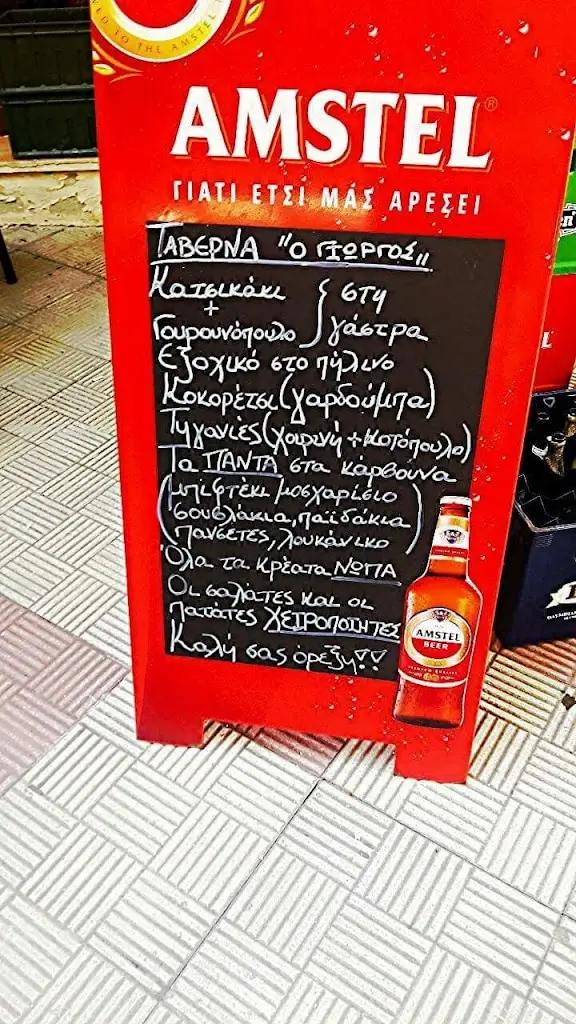 ED TO THE AMSTEL
AMSTEL®
ΓΙΑΤΙ ΕΤΣΙ ΜΑΣ ΑΡΕΣΕΙ
ΤΑΒΕΡΝΑ "Ο ΓΙΩΡΓΟΣ"
Κατσικάκι { στη
+
Γουρουνόπουλο } γάστρα
Εξοχικό στο πήλινο
Κοκορέτσι (γαρδούμπα)
Τηγανιές (χοιρινή + κοτόπουλο)
Τα ΠΑΝΤΑ στα κάρβουνα
(μπιφτέκι μοσχαρίσιο
σουβλάκια, παϊδάκια
πανσέτες, λουκάνικο)
Όλα τα κρέατα ΝΩΠΑ
Οι σαλάτες και οι
πατάτες ΧΕΙΡΟΠΟΙΗΤΕΣ
Καλή σας όρεξη!!
AMSTEL
BEER